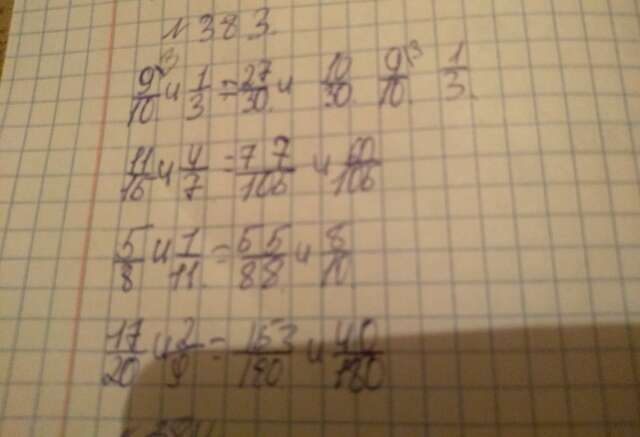 №383.
9/10 и 1/3 = 27/30 и 10/30. 9/10 1/3.
11/16 и 4/7 = 77/106 и 60/106
5/8 и 1/11 = 55/88 и 8/11.
17/20 и 2/9 = 153/180 и 40/180